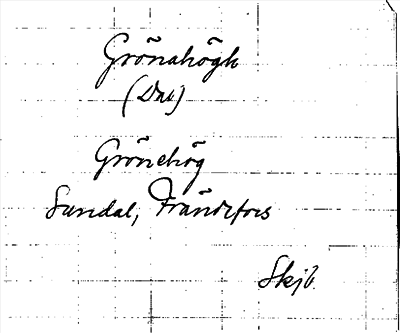 Grönahögh
(Dal)
Grönehög
Sundal, Frändefors
Skjb.